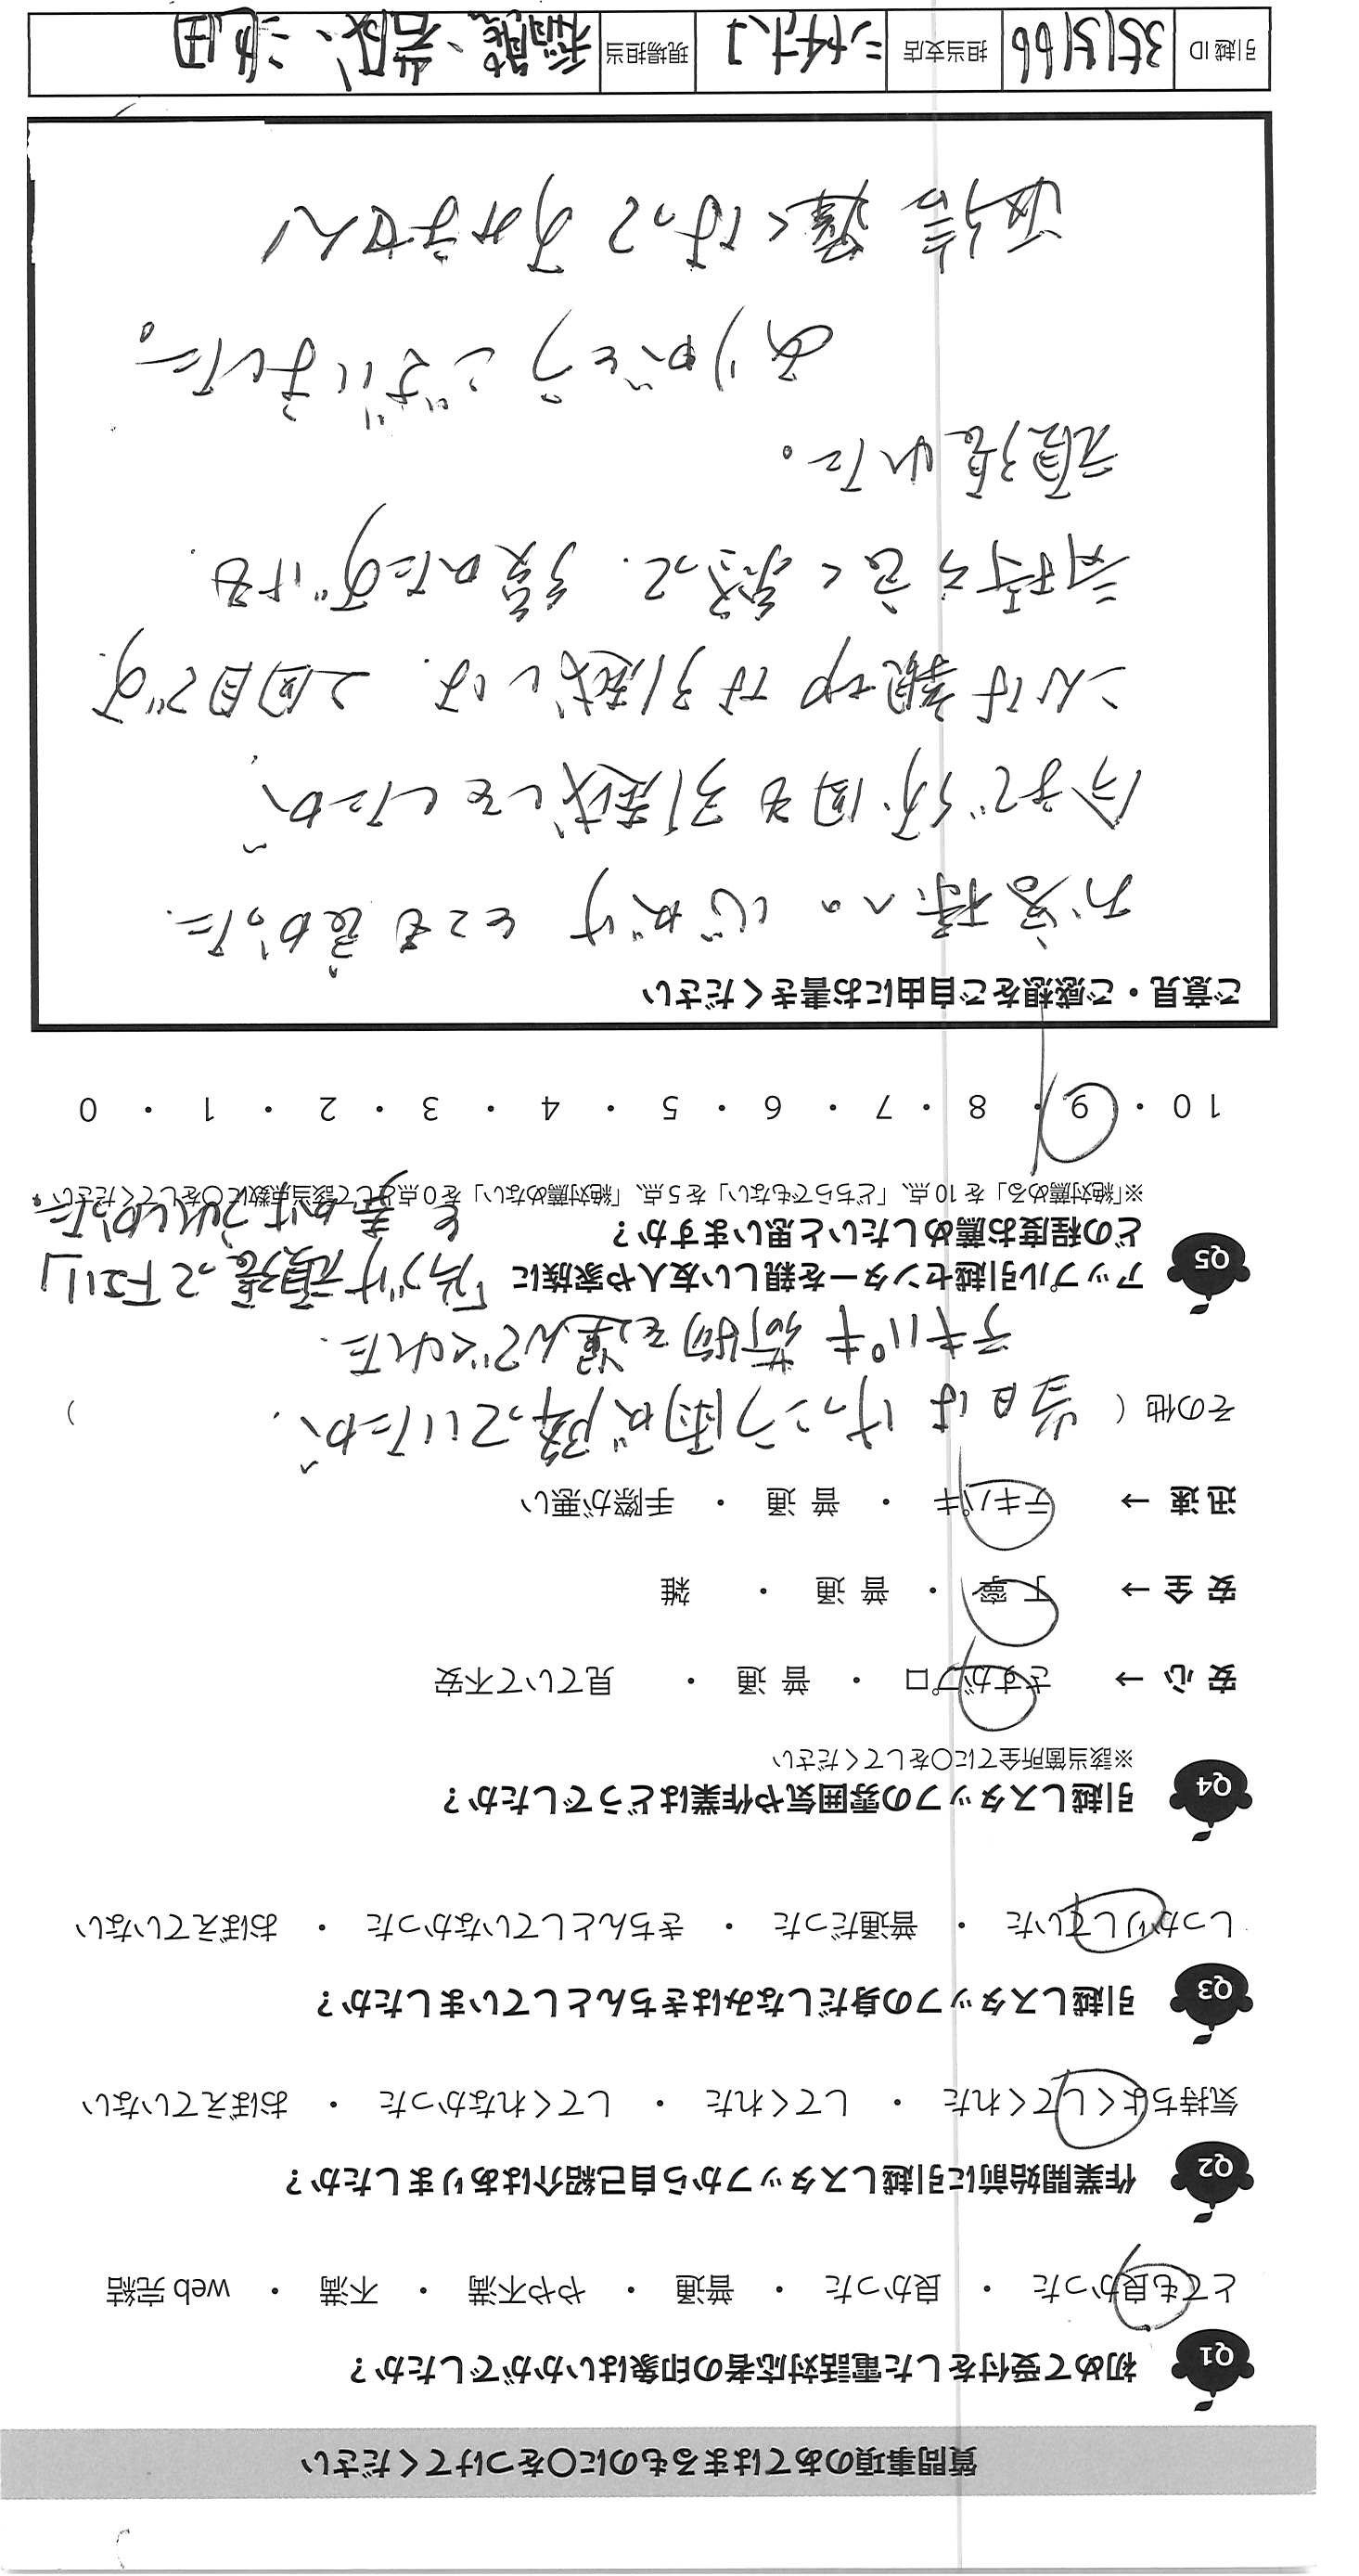 質問事項のあてはまるものに○をつけてください
Q1 初めて受付をした電話対応者の印象はいかがでしたか？
とても良かった ・ 良かった ・ 普通 ・ やや不満 ・ 不満 ・ web 完結
Q2 作業開始前に引越しスタッフから自己紹介はありましたか？
気持ちよくしてくれた ・ してくれた ・ してくれなかった ・ おぼえていない
Q3 引越しスタッフの身だしなみはきちんとしていましたか？
しっかりしていた ・ 普通だった ・ きちんとしていなかった ・ おぼえていない
Q4 引越しスタッフの雰囲気や作業はどうでしたか？
※該当箇所全てに○をしてください
安心 → さすがプロ ・ 普通 ・ 見ていて不安
安全 → 丁寧 ・ 普通 ・ 雑
迅速 → テキパキ ・ 普通 ・ 手際が悪い
その他（ 当日はけっこう雨が降っていたが、 ）
テキパキ荷物を運んでくれた.
「片づけ頑張って下さい」
と 声かけうれしかった。
Q5 アップル引越センターを親しい友人や家族に
どの程度お薦めしたいと思いますか？
※「絶対薦める」を10点、「どちらでもない」を5点、「絶対薦めない」を0点として該当点数に○をしてください。
10 ・ 9 ・ 8 ・ 7 ・ 6 ・ 5 ・ 4 ・ 3 ・ 2 ・ 1 ・ 0
ご意見・ご感想をご自由にお書きください
お客様への心がけ とても良かった.
今まで何回も引越しをしたが、
こんな親切な引越しは. 2回目です.
気持ち良く終って. 疲れたけども.
頑張れた。
ありがとうございました。
返信遅くなってすみません
引越ID 3515166 担当支店 現場担当 稲葉、岩成、池田